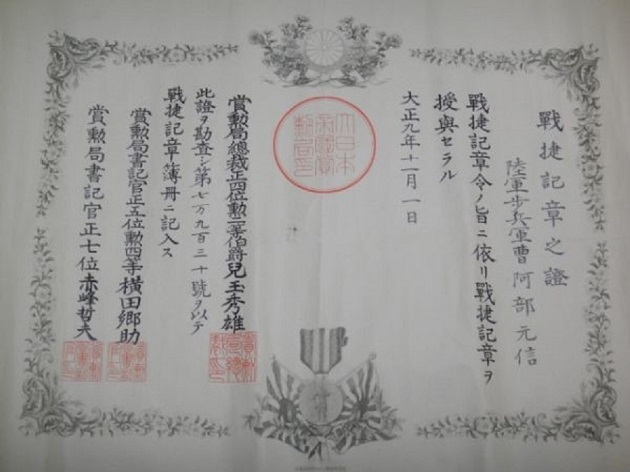 戰捷記章之證
陸軍歩兵軍曹 阿部元信
戰捷記章令ノ旨ニ依リ戰捷記章ヲ
授與セラル
大正九年十一月一日
大日本
帝國賞
勲局印
賞勲局總裁正四位勲一等伯爵兒玉秀雄
此證ヲ勘査シ第七万九百三十號ヲ以テ
戰捷記章簿冊ニ記入ス
賞勲局書記官正五位勲四等横田郷助
賞勲局書記官正七位赤峰哲夫